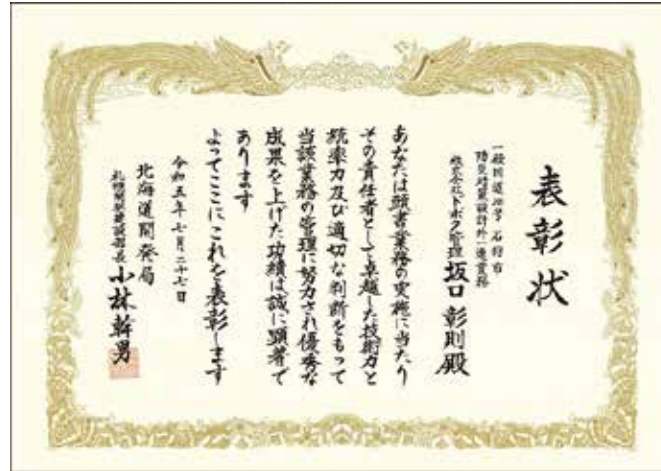 表彰状
一般国道231号 石狩市
防災対策設計外一連業務
株式会社ドボク管理 坂口 彰則 殿
あなたは頭書業務の実施に当たり
その責任者として卓越した技術力と
統率力及び適切な判断をもって
当該業務の管理に努力され優秀な
成果を上げた功績は誠に顕著で
あります
よってここにこれを表彰します
令和五年七月二十七日
北海道開発局
札幌開発建設部長 小林 幹男